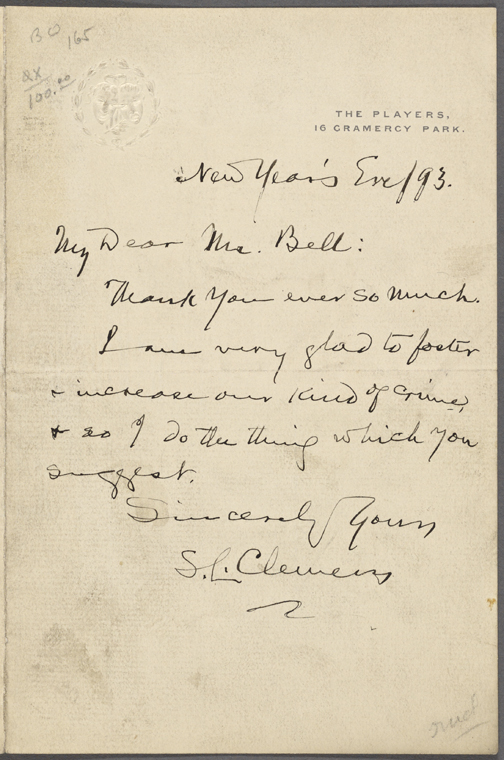 BO 165
2x
100.00
THE PLAYERS,
16 GRAMERCY PARK.
New Year's Eve/93.
My Dear Mr. Bell:
Thank You ever so much.
I am very glad to foster
& increase our kind of crime,
& so I do the thing which you
suggest.
Sincerely Yours
S. L. Clemens